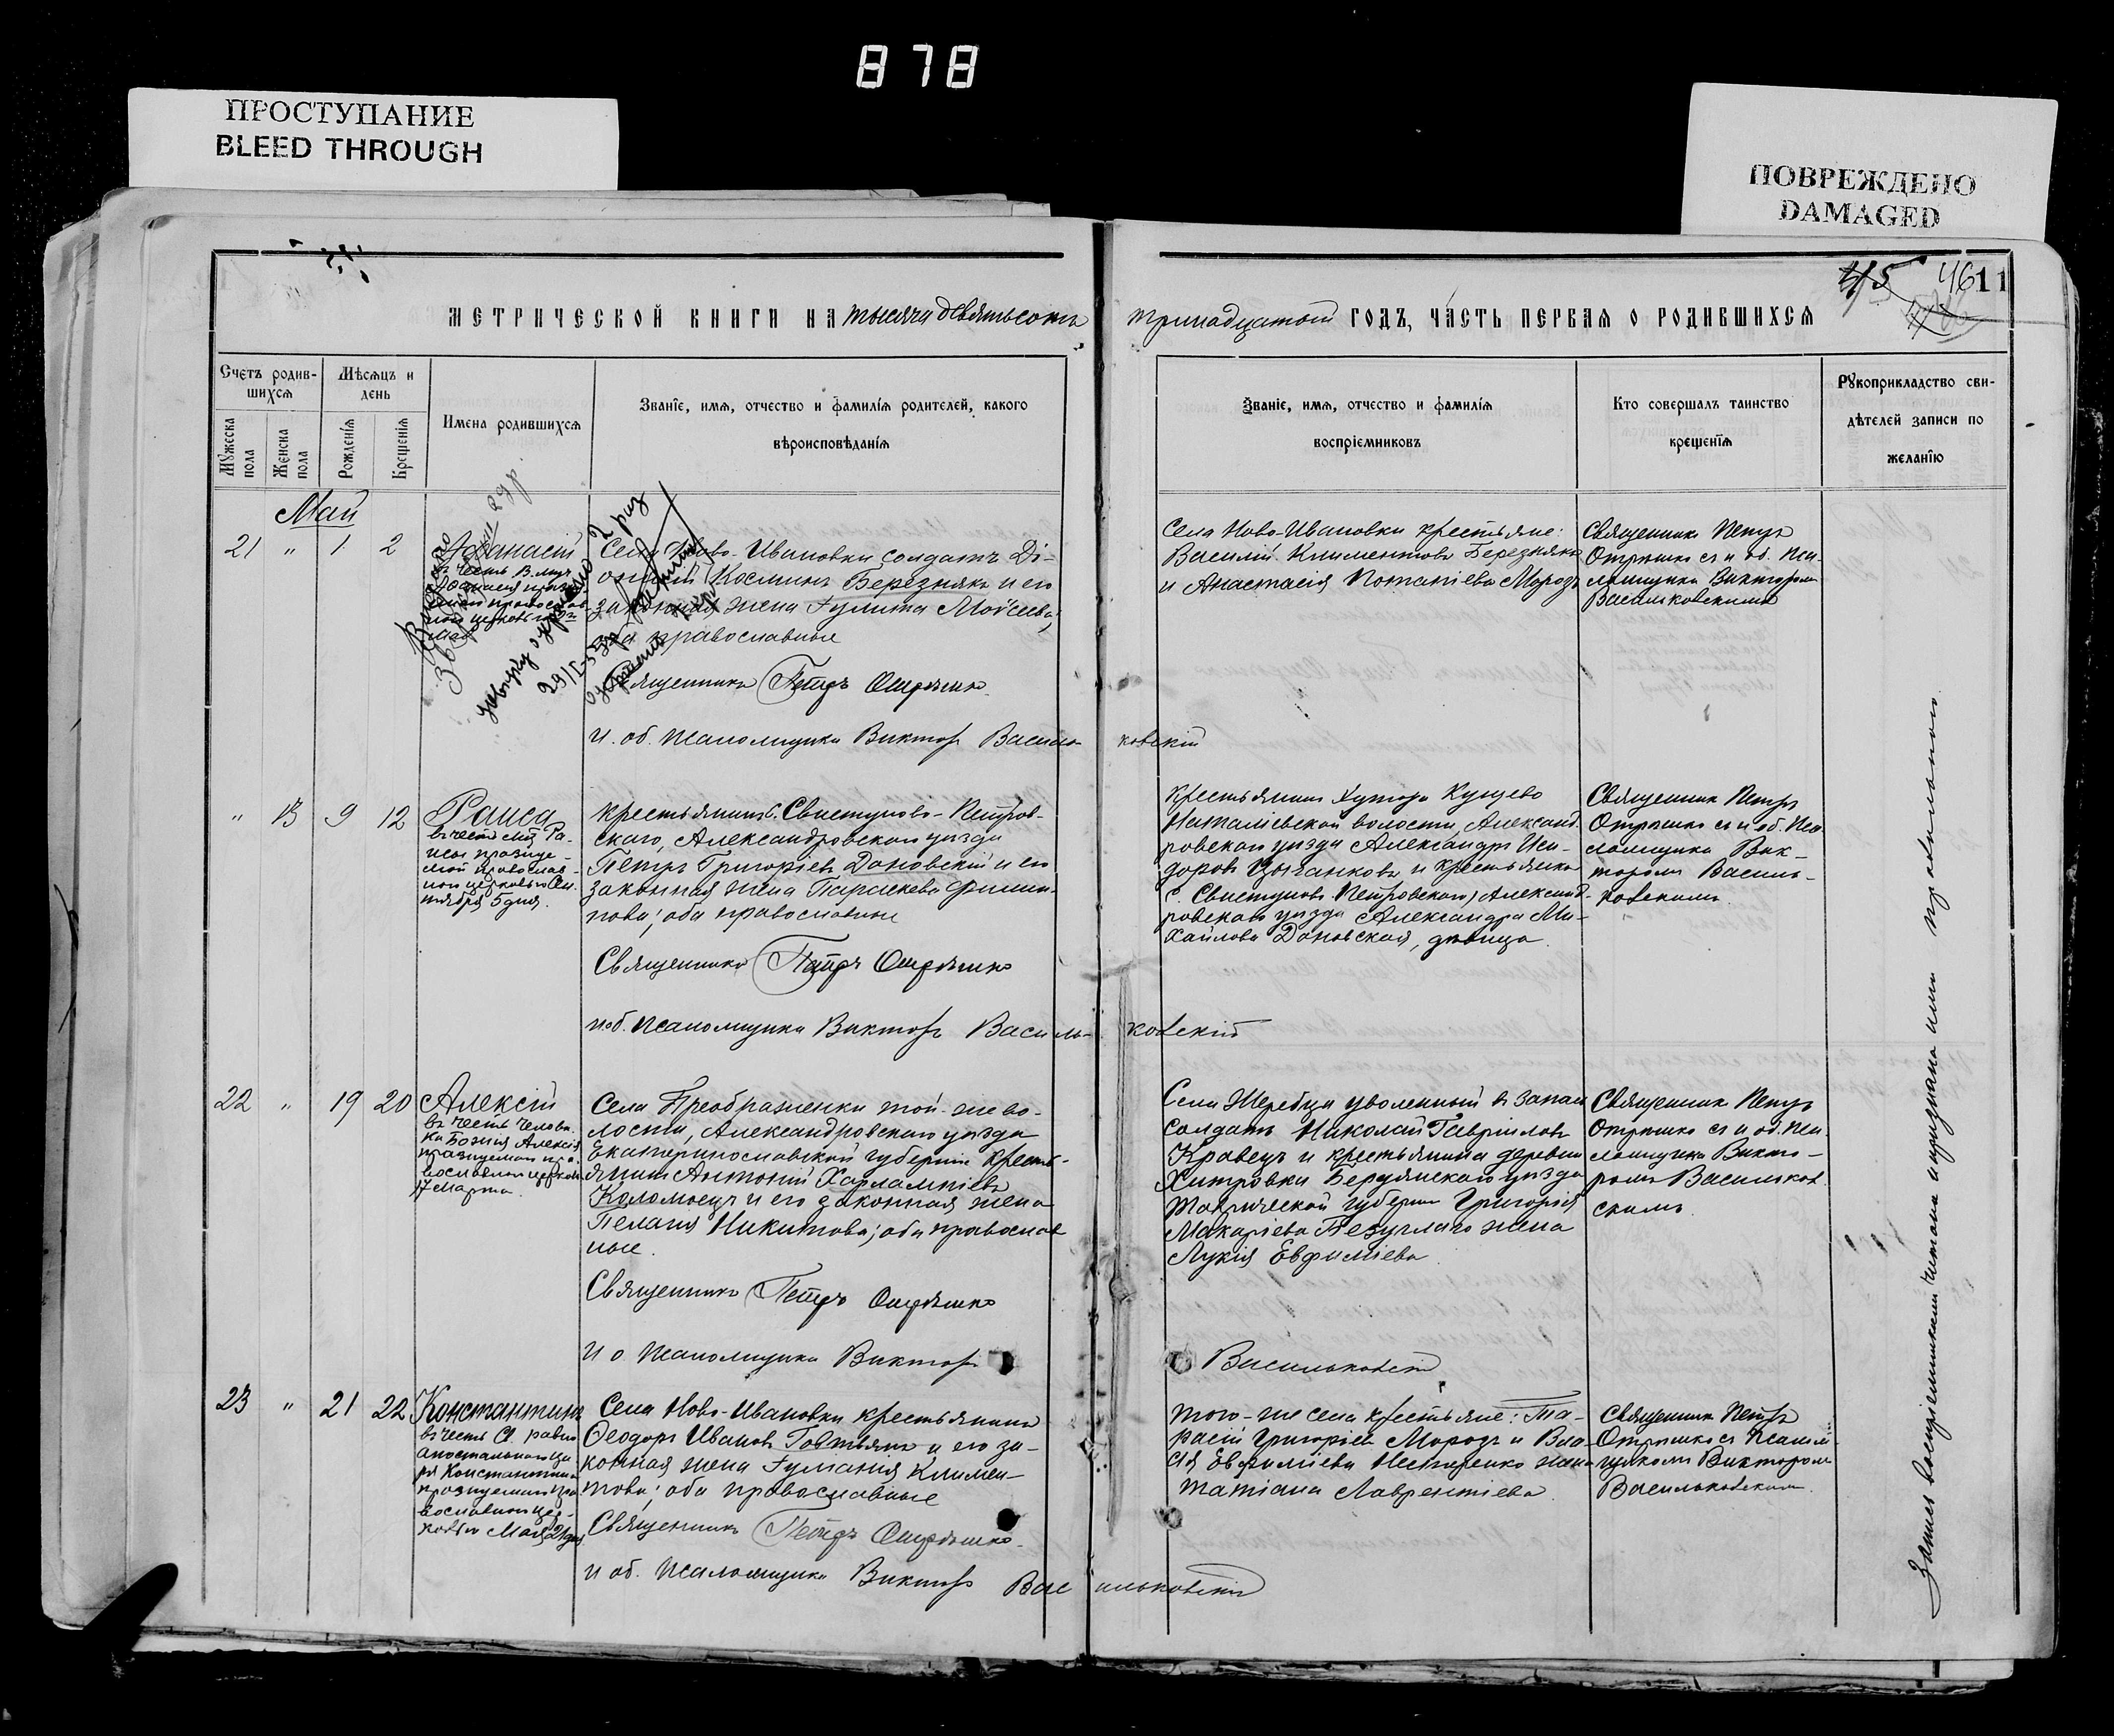 878
ПРОСТУПАНИЕ
BLEED THROUGH
ПОВРЕЖДЕНО
DAMAGED
45 46 11
МЕТРИЧЕСКОЙ КНИГИ НА тысяча девятьсотъ тринадцатый ГОДЪ, ЧАСТЬ ПЕРВАЯ О РОДИВШИХСЯ
Счетъ родив-
шихся
Мужеска пола
Женска пола
Мѣсяцъ и день
Рожденія
Крещенія
Имена родившихся
Званіе, имя, отчество и фамилія родителей, какого
вѣроисповѣданія
Званіе, имя, отчество и фамилія
воспріемниковъ
Кто совершалъ таинство
крещенія
Рукоприкладство сви-
дѣтелей записи по
желанію
Май
21 " 1 2
Афанасій
Села Ново-Ивановки солдатъ Ді-
Косминъ Березнякъ и его
законная жена Гулита Моисеева,
оба православные
Священникъ Петръ Отрѣшко
и. об. псаломщика Виктор Васильковскій
Села Ново-Ивановки крестьяне:
Василій Климентовъ Березнякъ
и Анастасія Потапіева Морозъ
Священникъ Петръ
Отрѣшко съ и. об. пса-
ломщика Викторомъ
Васильковскимъ
" 13 9 12
Раиса
въ честь мц. Ра-
исы праздуе-
мой православ-
ной церковью Сен-
тября 5 дня.
Крестьянинъ с. Свистуново-Петров-
скаго, Александровскаго уѣзда
Петръ Григоріевъ Доновскій и его
законная жена Параскева Филип-
пова; оба православные
Священникъ Петръ Отрѣшко
и. об. псаломщика Викторъ Васильковскій
Крестьянинъ хутора Кущево
Наталіевской волости, Александ-
ровскаго уѣзда Александръ Иси-
доровъ Цыганковъ и крестьянка
с. Свистуново-Петровскаго, Александ-
ровскаго уѣзда Александра Ми-
хайлова Доновская, дѣвица
Священникъ Петръ
Отрѣшко съ и. об. пса-
ломщика Вик-
торомъ Василь-
ковскимъ
22 " 19 20
Алексій
въ честь Челове-
ка Божія Алексія
празднуемаго пра-
вославной церков.
17 Марта.
Села Преображенки той-же во-
лости, Александровскаго уѣзда
Екатеринославской губерніи кресть-
янинъ Антоній Харлампіевъ
Коломоецъ и его законная жена
Пелагія Никитова; оба православ
ные.
Священникъ Петръ Отрѣшко
И о псаломщика Викторъ Васильковскій
Села Жеребца уволенный въ запасъ
солдатъ Николай Гавриловъ
Кравецъ и крестьянина деревни
Хитровки Бердянскаго уѣзда
Таврической губерніи Григорія
Макаріева Безуглаго жена
Лукія Евфиміева
Священникъ Петръ
Отрѣшко съ и. об. пса-
ломщика Викто-
ромъ Васильков
скимъ
23 " 21 22
Константинъ
въ честь Св. равно
апостольнаго ца-
ря Константина
празднуемаго пра
вославной цер-
ковью Мая 21 дня
Села Ново-Ивановки крестьянинъ
Ѳеодоръ Ивановъ Говтьянъ и его за-
конная жена Гуліанія Климен-
това; оба православные
Священникъ Петръ Отрѣшко
и об. псаломщика Викторъ Васильковскій
того-же села крестьяне: Та-
расій Григоріевъ Морозъ и Вла-
сія Евфиміева Нестеренко жена
Татіана Лаврентіева
Священникъ Петръ
Отрѣшко съ псалом-
щикомъ Викторомъ
Васильковскимъ.